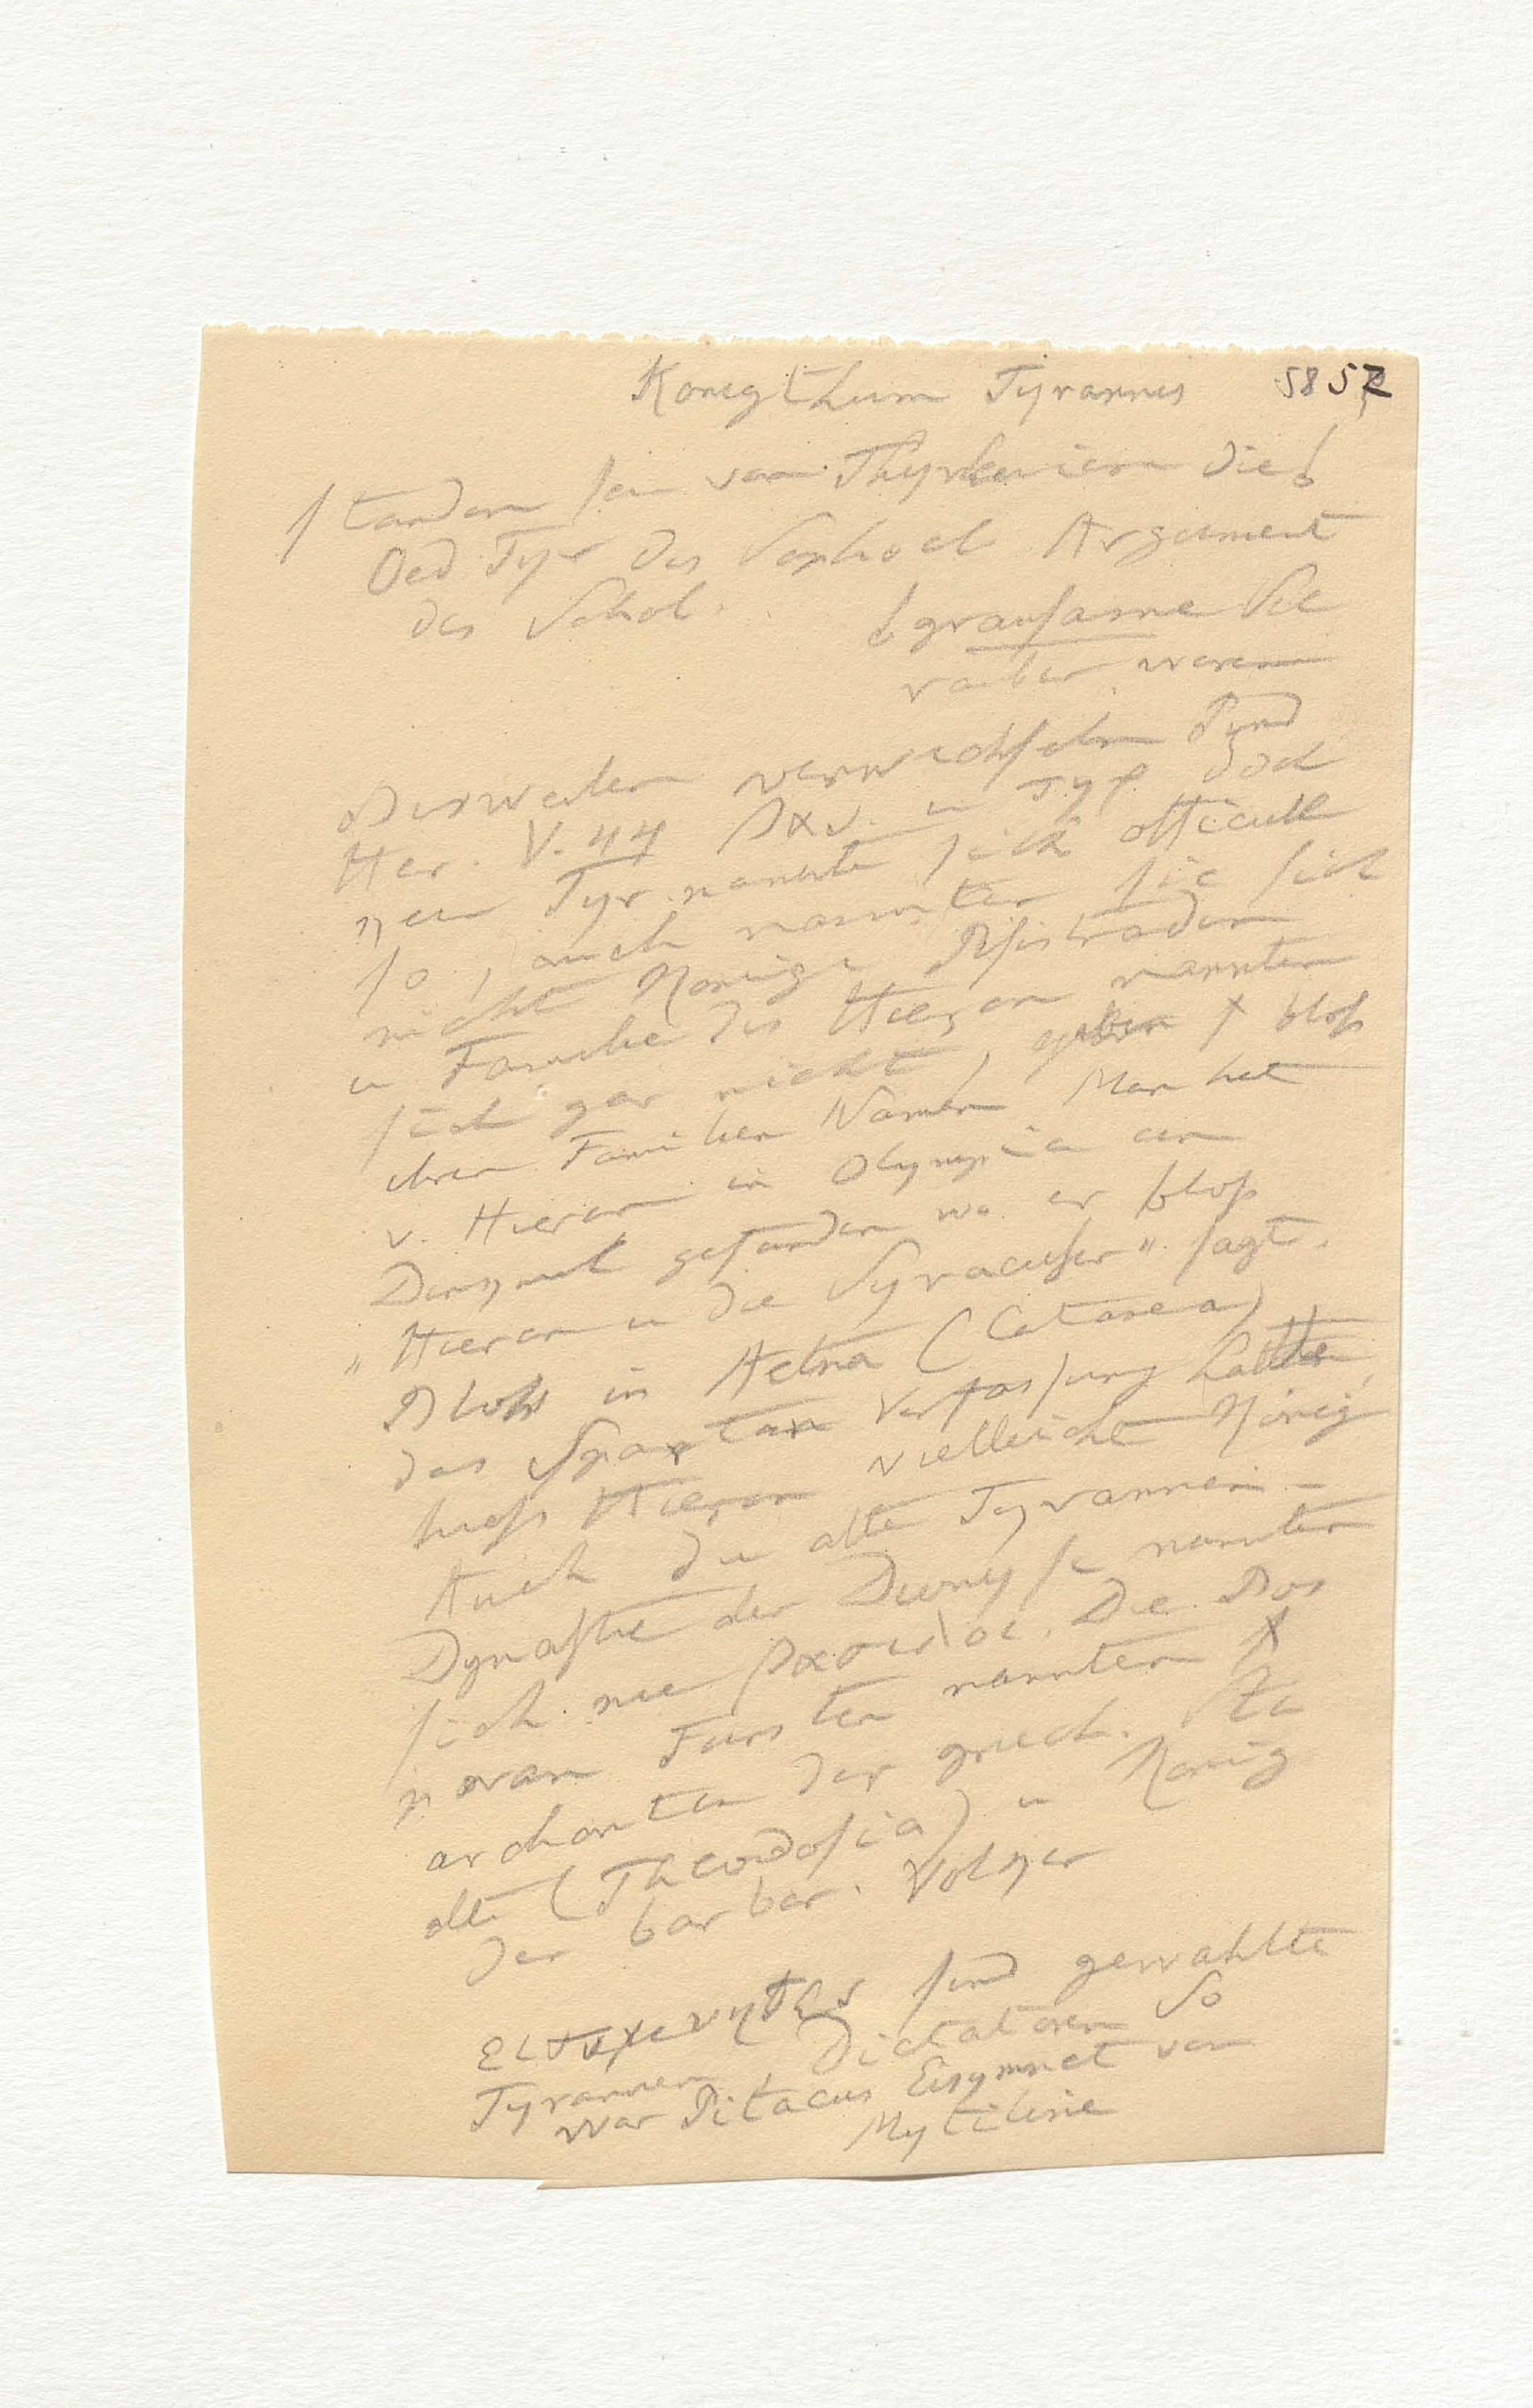 Konigthum Tyrannis 5852
standen sein von Thyrheniern die
Oed Tyr des Sophocl Argument
des Schol.
grausame See
rauber waren
Bisweilen verwechseln Pind
Her. V. 44 βασ. u τυρ. doch
nen Tyr. nannte sich officiell
so, auch nannten sie sich
nicht Konige Pisistraden
u Familie des Hieron nannten
sich gar nicht, gaben bloß
ihren Familien Namen Man hat
v. Hieron in Olympia ein
Denkmal gefunden wo er bloß
„Hieron u die Syracuser" sagt.
Bloß in Aetna (Catanea)
das Spartan Verfassung hatte,
hieß Hieron vielleicht König
Auch die alte Tyrannen-
Dynastie der Dionyse nannten
sich nie βασιλοι. Die Bos
poran Fursten nannten
archonten der griech. Sta
dte (Theodosia) u Konig
der barbar. Volker
sind gewahlte
Tyrannen, Dictatoren So
war Pitacus Eisymnet von
Mytilene